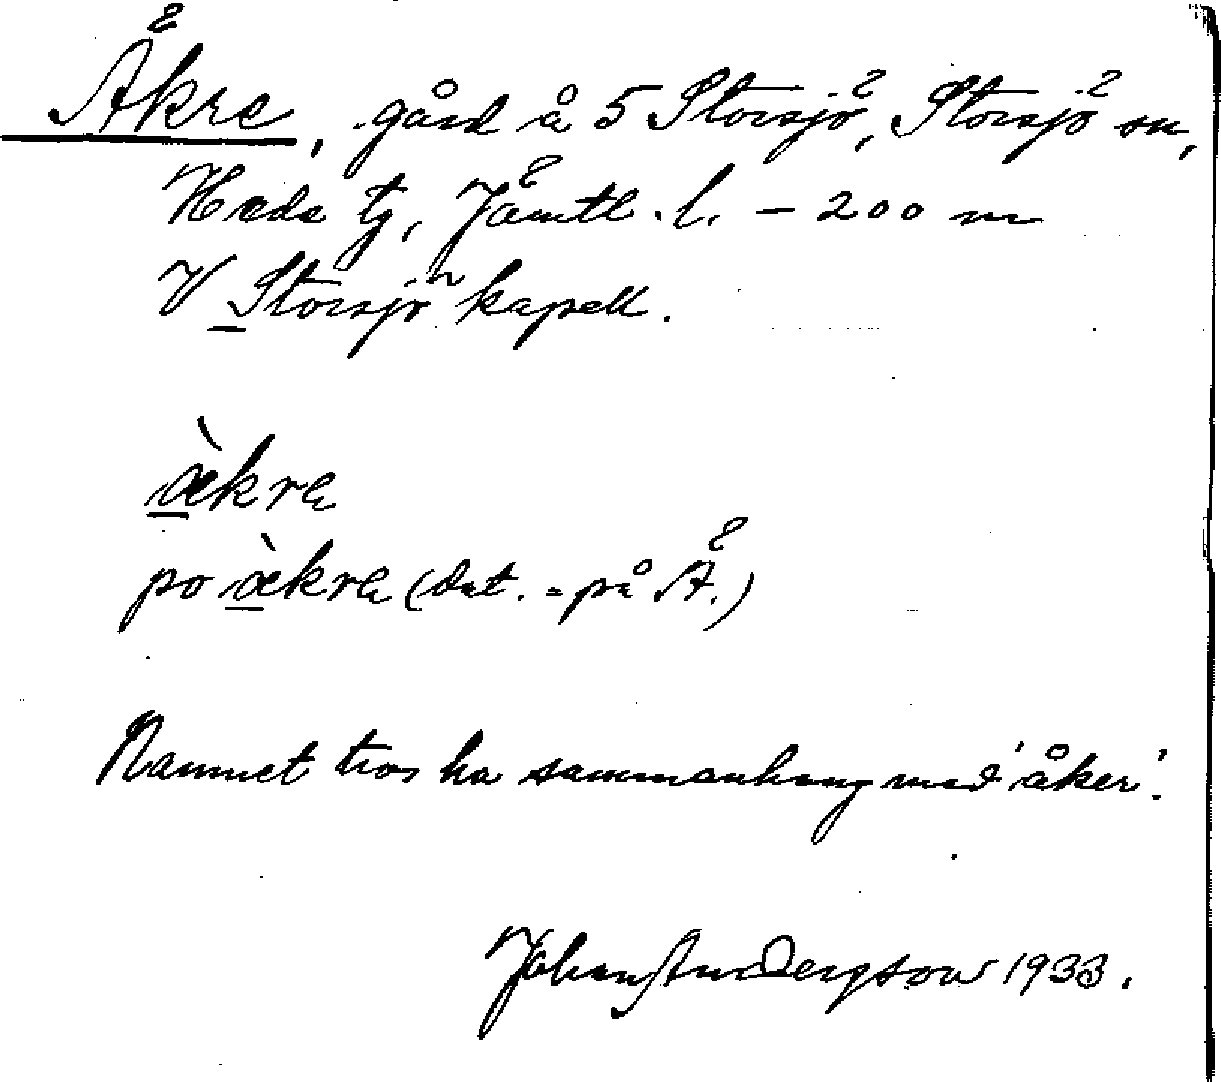 Åkre, gård å 5 Storsjö, Storsjö sn,
Hede tg, Jämtl. l. – 200 m
V Storsjö kapell.
æ̀kra
po æ̀kra (dat. = på Å.)
Namnet tros ha sammanhang med 'åker'.
Johan 1933.